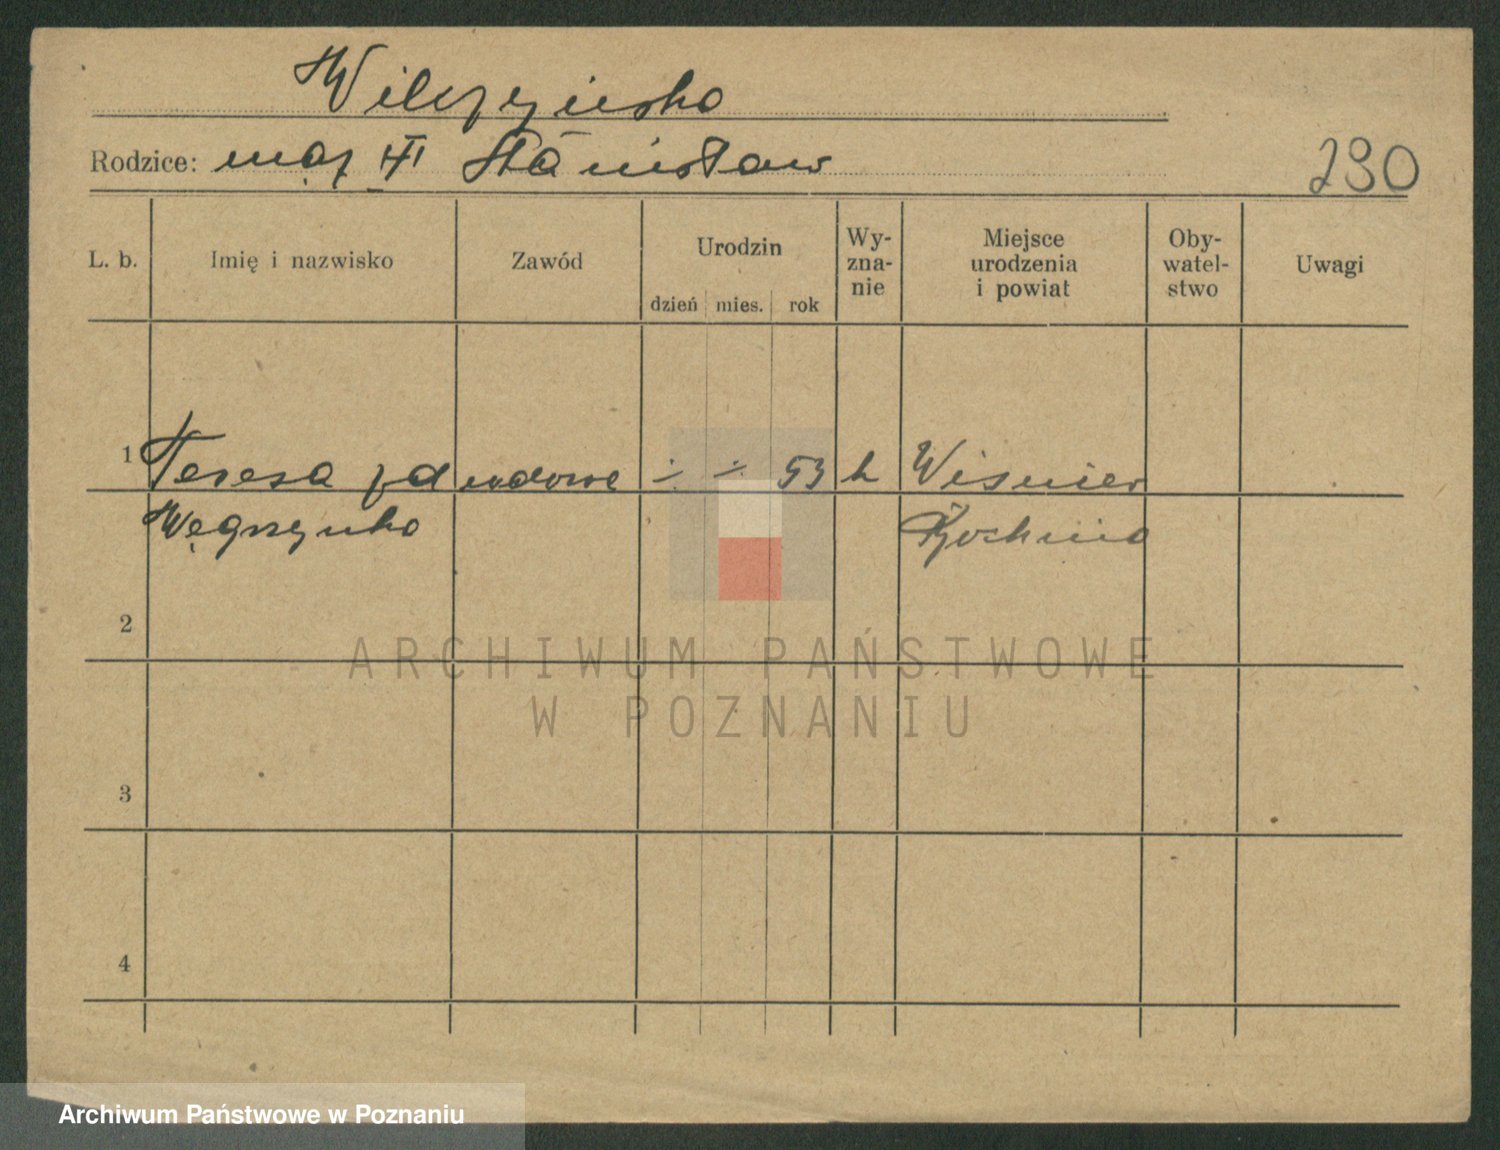 Wilczyńska
Rodzice: mąż II Stanisław
230
L. b. Imię i nazwisko Zawód Urodzin dzień mies. rok Wy-zna-nie Miejsce urodzenia i powiat Oby-watel-stwo Uwagi
1 Teresa zd wdowa ÷ ÷ 53 k
Węgrzynka
2
3
4
ARCHIWUM PAŃSTWOWE
W POZNANIU
Archiwum Państwowe w Poznaniu